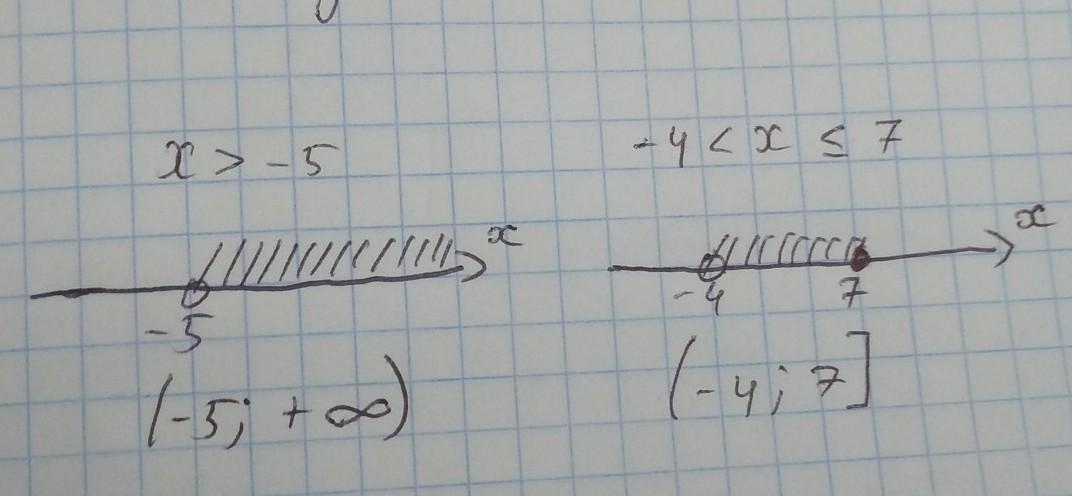 x > -5
x
-5
(-5; + ∞)
-4 < x ≤ 7
x
-4 7
(-4; 7]